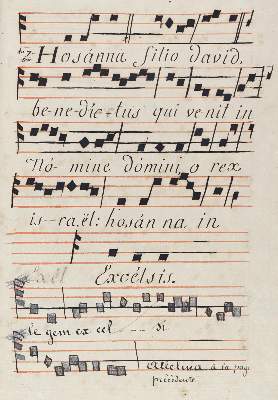 Hosánna filio david.
be-ne-dic-tus qui venit in
nó-mine dómini, o rex
is-raël: hosánna in
Excélsis.
le gem ex cel -- si
à la page
précédente